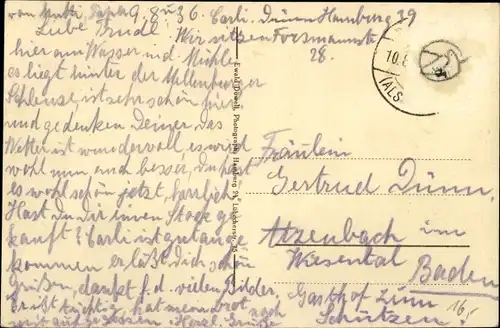 von Mutti, Papa 9. 8. 36. Carli. Dünn Hamburg 29
Liebe Trudl! Wir sitzen Forsmannstr
28.
hier am Wasser i. d. Mühle
es liegt hinter der Mellenburger
Schleuse, ist sehr schön hier
und gedenken Deiner, das
Wetter ist wundervoll es wird
wohl nun auch besser, Du hast
es wohl schön jetzt, herrlich
Hast Du Dir einen Stock ge-
kauft? Carli ist gut ange-
kommen er läßt Dich schön
Grüßen, dankt f. d. vielen Bilder,
Er ißt tüchtig, hat
Herzl. Grüße
10.8
(ALS
Ewald Dowell, Photograph, Hamburg 21,
Fräulein
Gertrud Dünn,
Atzenbach im
Wiesental
Baden
Gasthof zum
Schützen!
16,-